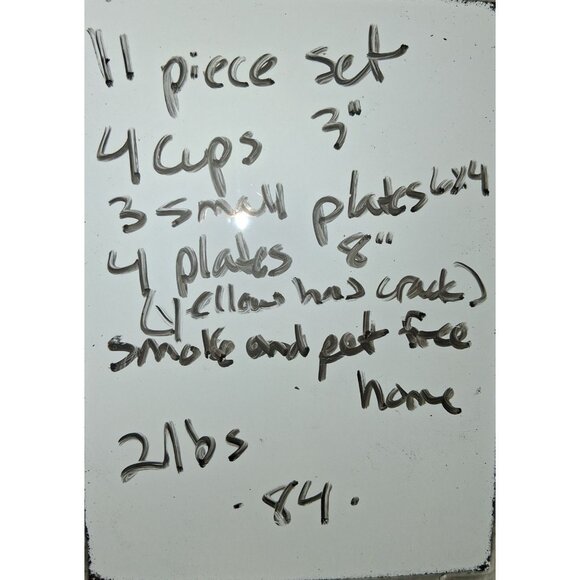 11 piece set
4 cups 3"
3 small plates 6x4
4 plates 8"
(yellow has crack)
smoke and pet free
home
2lbs
· 84 ·